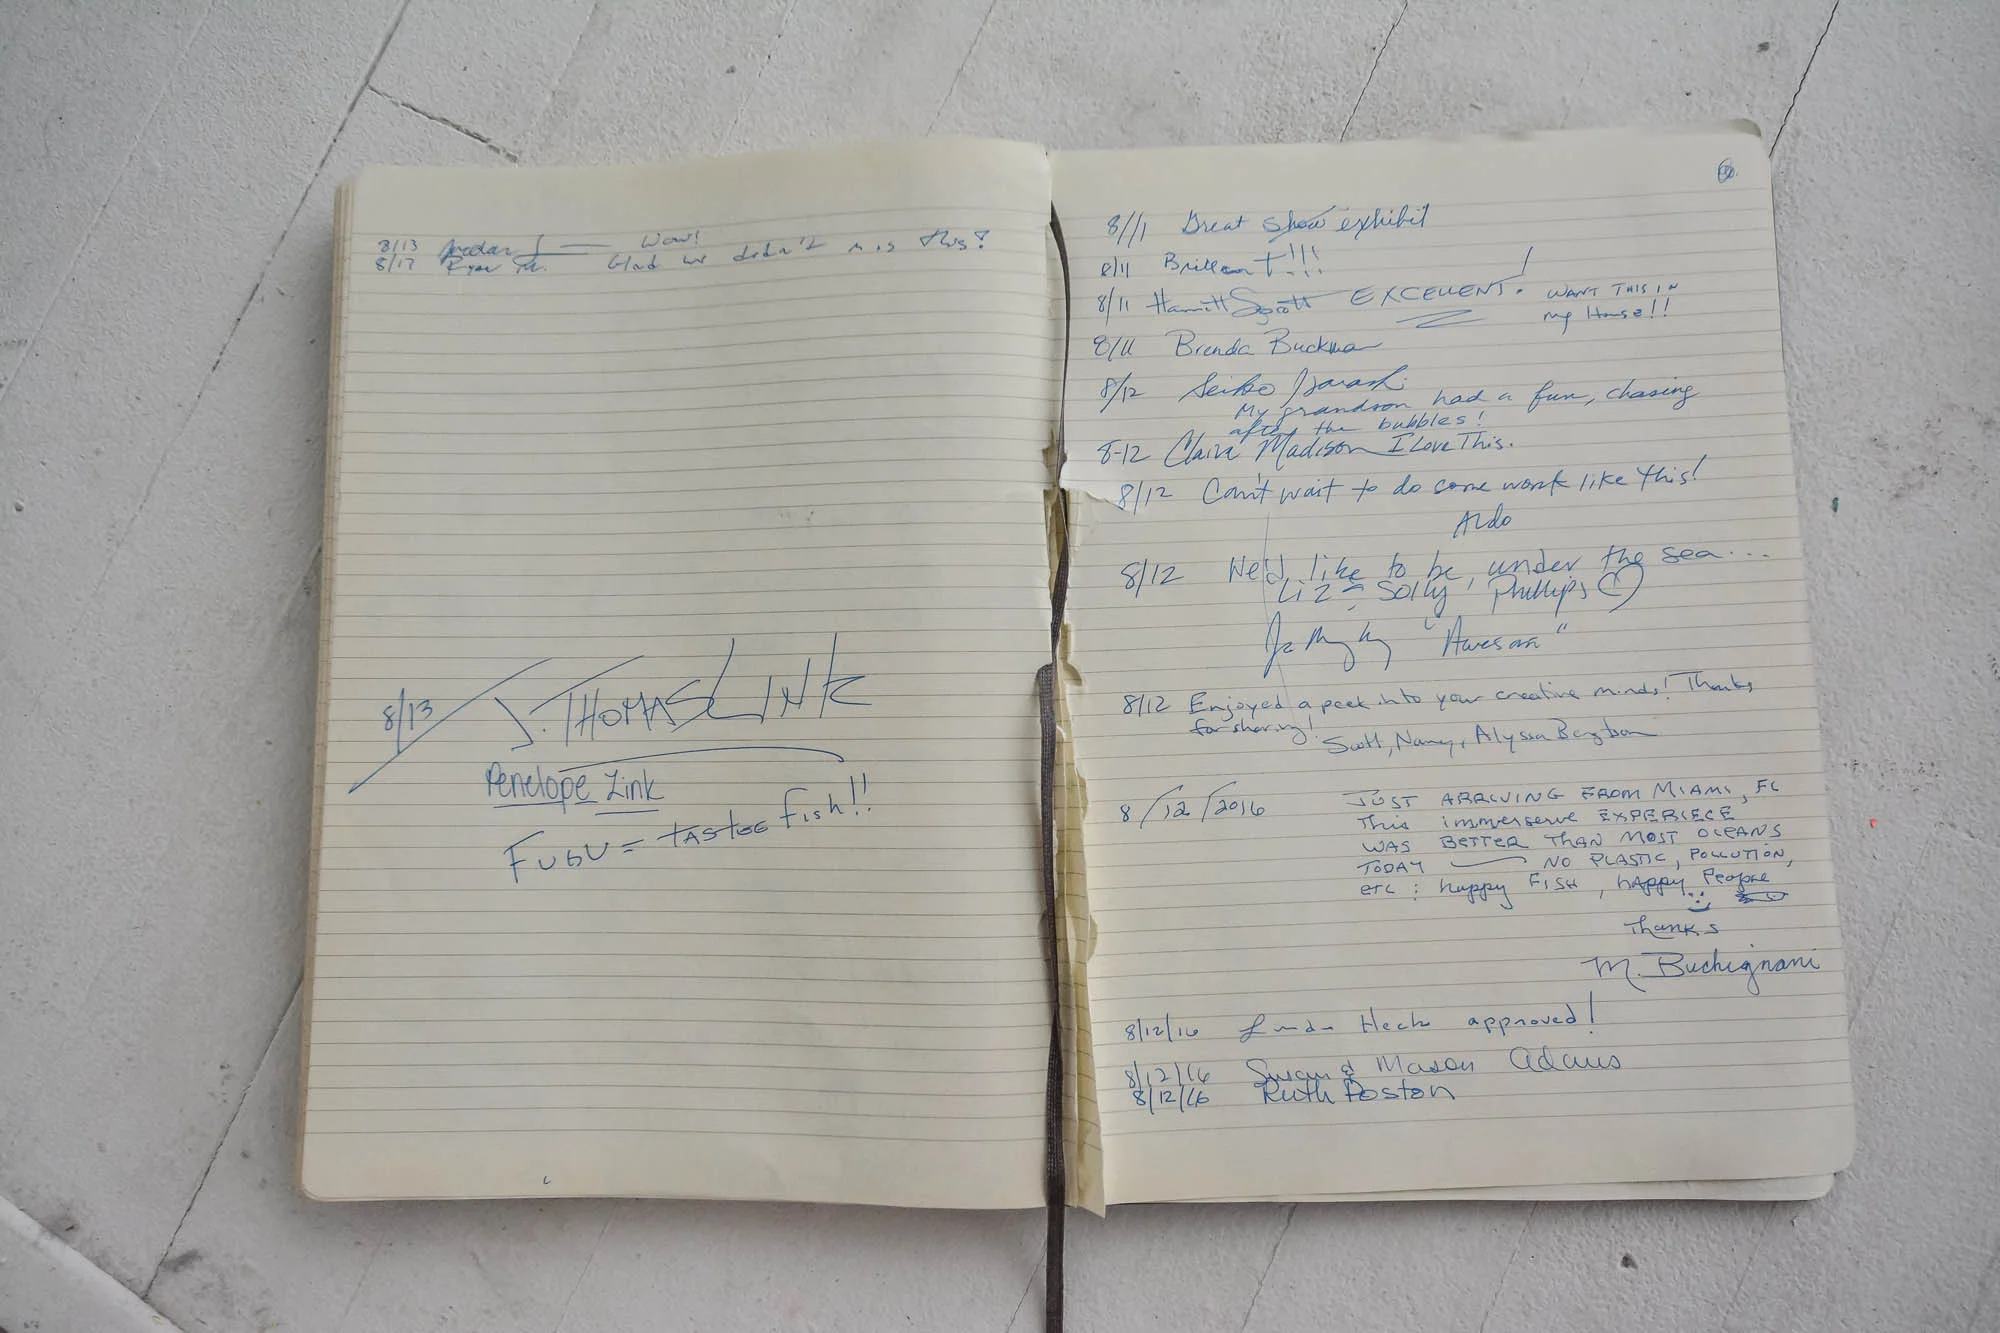 8/13 Wow!
8/13 Ryan Glad we didn't miss this!
8/13 J. THOMAS LINK
Penelope Link
FUGU = TASTEE Fish!!
8/11 Great show exhibit
8/11 !!!
8/11 EXCELLENT! WANT THIS IN
my House!!
8/11 Brenda Buckman
8/12 Seiko
My grandson had a fun, chasing
after the bubbles!
8-12 Claire Madison I Love This.
8/12 Can't wait to do some work like this!
Aldo
8/12 We'd like to be, under the sea...
Liz & Solly Phillips
"Awesom"
8/12 Enjoyed a peek into your creative minds! Thanks
for sharing!
Scott, Nancy, Alyssa
8/12/2016 JUST ARRIVING FROM MIAMI, FL
This immverserve EXPERIECE
WAS BETTER THAN MOST OCEANS
TODAY — NO PLASTIC, POLLUTION,
etc : happy FISH, happy People
Thanks
M. Buchignani
8/12/16 Linda Heck approved!
8/12/16 Susan & Mason Adams
8/12/16 Ruth Poston